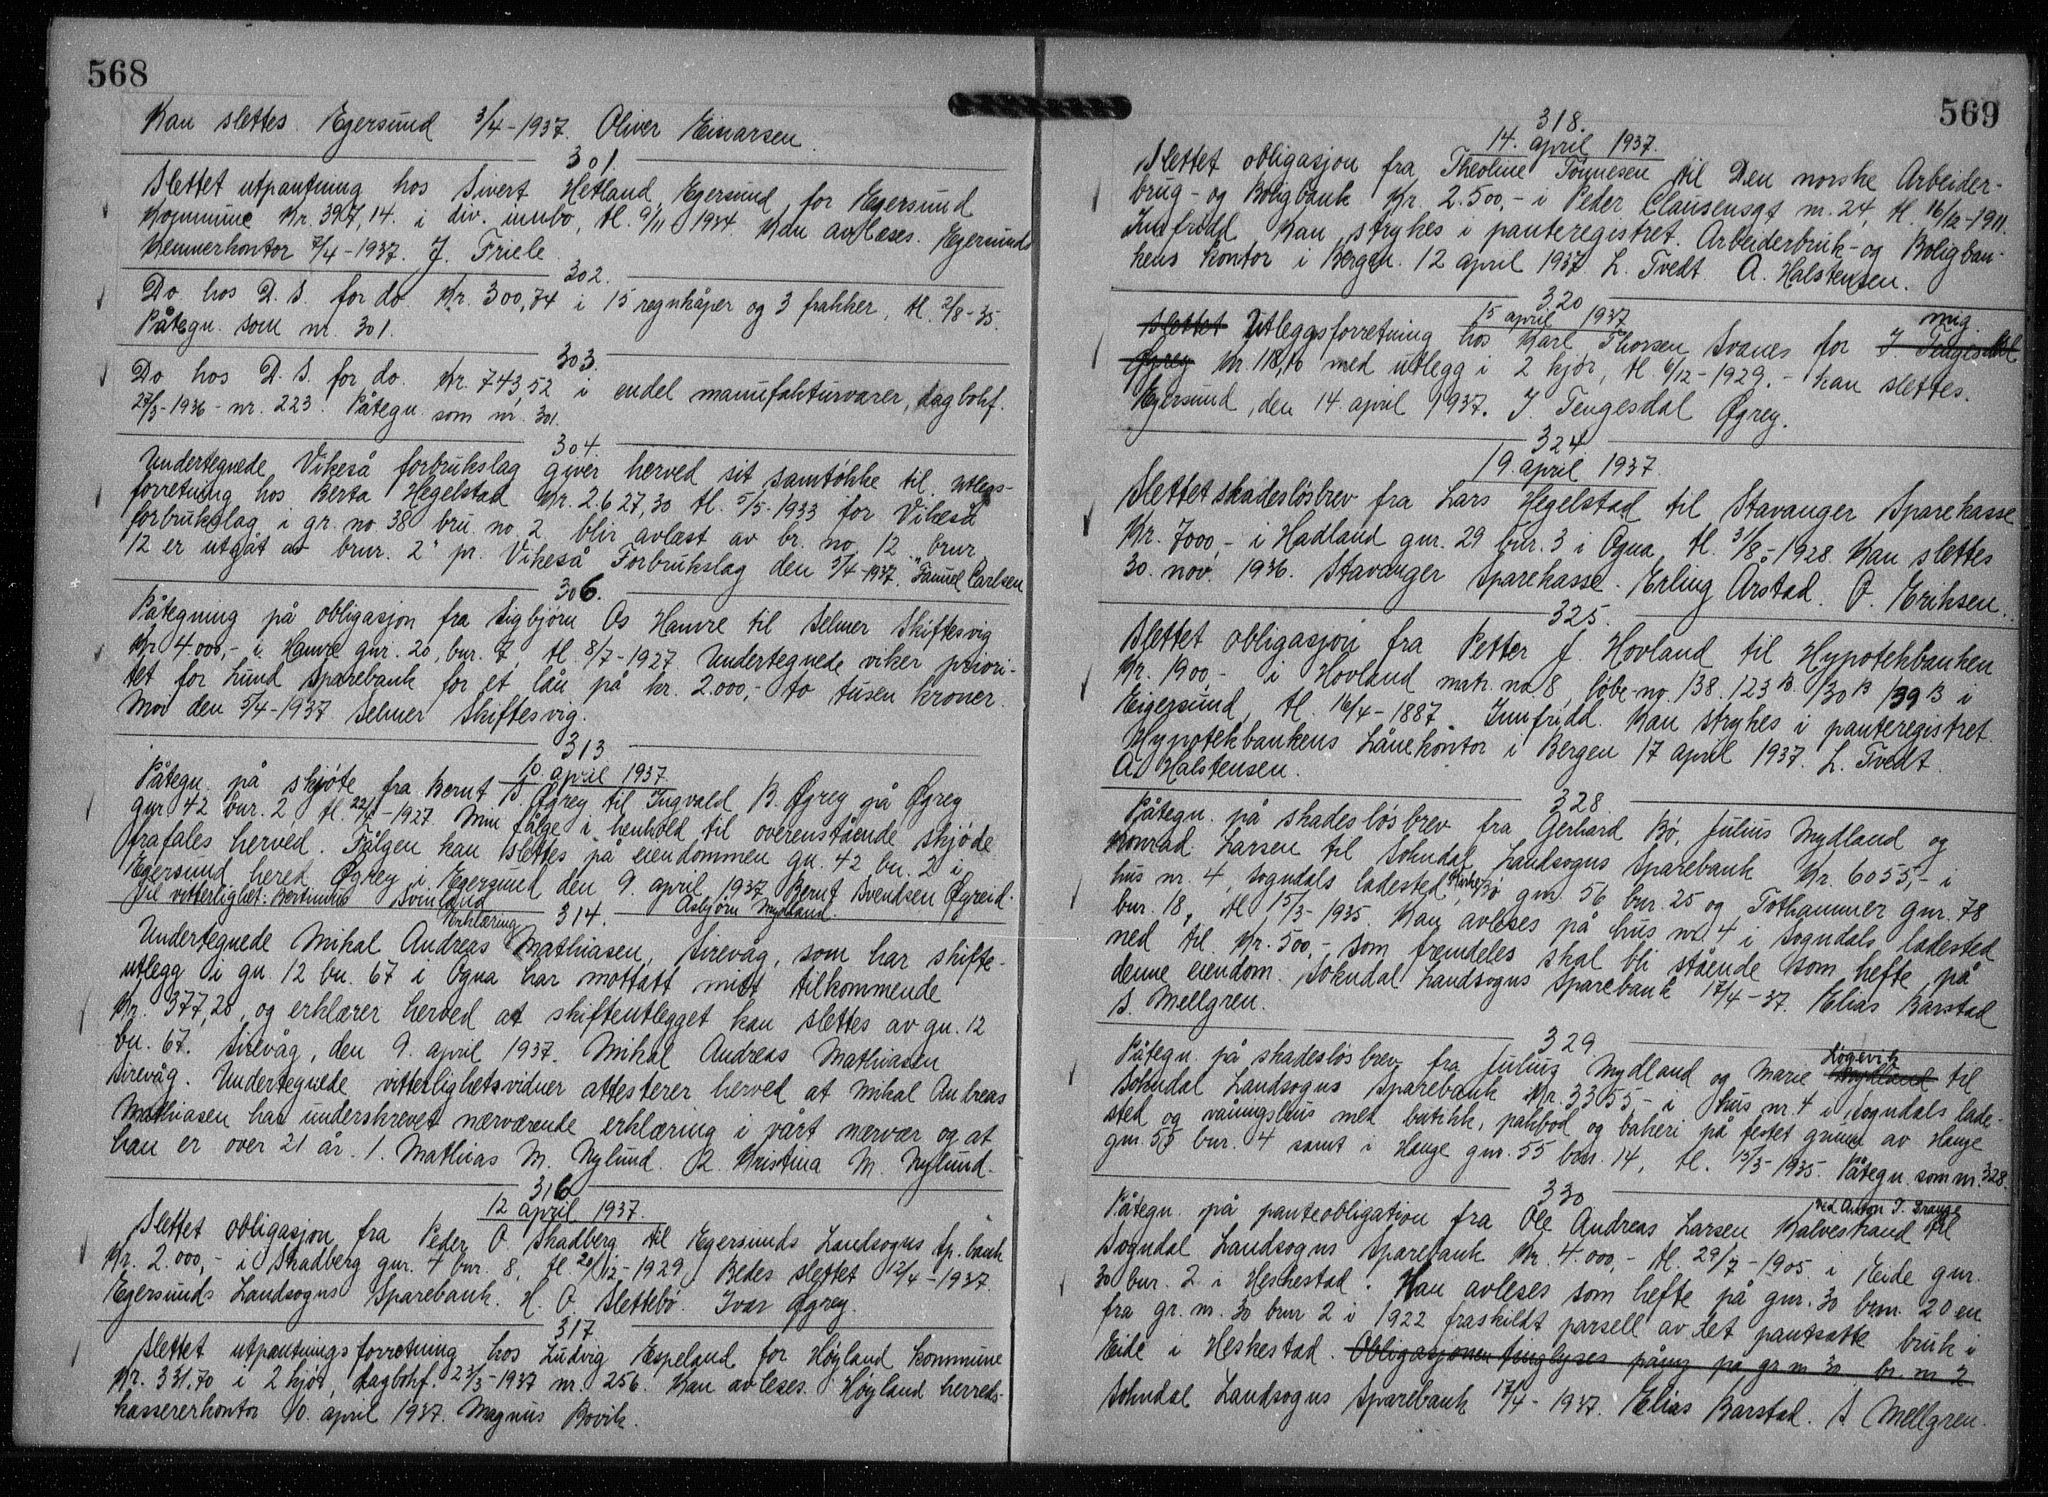 568
Kan slettes. Egersund 3/4-1937. Oliver Einarsen.
301.
Slettet utpantning hos Sivert Hetland, Egersund, for Egersund
Kommune Kr. 397,14. i div. innbo, tl. 9/11 1934. Kan avlæses. Egersunds
Kemnerkontor 7/4-1937. J. Friele.
302.
Do hos D. S. for do. Kr. 300,74 i 15 regnkåper og 3 frakker, tl. 2/8-35.
Påtegn. som nr. 301.
303.
Do hos D. S. for do. Kr. 743,52 i endel manufakturvarer, dagbokf.
27/3-1936 - nr. 223. Påtegn. som nr. 301.
304.
Undertegnede Vikeså forbrukslag giver herved sit samtøkke til utlegs-
forretning hos Berta Hegelstad Kr. 2627,30 tl. 5/5-1933 for Vikeså
forbrukslag i gr. no 38 bru no 2 blir avlæst av br. no 12. "brur.
12 er utgåt av brur. 2" pr. Vikeså Forbrukslag den 3/4-1937. Samuel Carlsen
306.
Påtegning på obligasjon fra Sigbjørn Os Hamre til Selmer Skiftesvig
Kr 4000,- i Hamre gnr. 20, bnr. 7, tl. 8/7-1927. Undertegnede viker priori-
tet for Lund Sparebank for et lån på kr. 2.000,- to tusen kroner.
Moi den 5/4-1937 Selmer Skiftesvig.
313
10. april 1937.
Påtegn. på skjøte fra Bernt S. Øgrey til Ingvald B. Øgrey på Øgrey
gnr. 42 bnr. 2, tl. 22/4-1927. Min følge i henhold til overenstående skjøde
frafales herved. Følgen kan slettes på eiendommen gn. 42 bn. 2 i
Egersund hered Øgrey i Egersund den 9. april 1937 Bernt Svendsen Øgreid.
Til vitterlighet: Bertinius Svinland Asbjørn Mydland.
314.
Erklæring
Undertegnede Mikal Andreas Mathiasen, Sirevåg, som har skifte-
utlegg i gn. 12 bn. 67 i Ogna har mottatt mitt tilkommende
Kr. 377,20, og erklærer herved at skifteutlegget kan slettes av gn. 12
bn. 67. Sirevåg, den 9. april 1937. Mikal Andreas Mathiasen
Sirevåg. Undertegnede vitterlighetsvidner attesterer herved at Mikal Andreas
Mathiasen har underskrevet nærværende erklæring i vårt nærvær og at
han er over 21 år. 1. Mathias M. Nylund. 2. Kristina M. Nylund.
316
12 april 1937.
Slettet obligasjon fra Peder O Skadberg til Egersunds Landsogns Sp.bank
Kr. 2.000,- i Skadberg gnr. 4 bnr. 8, tl. 20/12-1929. Bedes slettet 12/4-1937.
Egersunds Landsogns Sparebank. H. O. Slettebø. Ivar Øgrey.
317.
Slettet utpantningsforretning hos Ludvig Espeland for Høyland kommune
Kr. 331.70 i 2 kjør, dagbokf. 23/3-1937 nr. 256. Kan avleses. Høyland herreds-
kassererkontor 10. april 1937. Magnus Bovik.
569
318.
14. april 1937.
Slettet obligasjon fra Theoline Tønnesen til Den norske Arbeider-
brug- og Boligbank Kr. 2.500,- i Peder Clausensgt nr. 24, tl. 16/12-1911.
Innfridd. Kan strykes i panteregistret. Arbeiderbruk- og Boligban-
kens kontor i Bergen. 12 april 1937. L. Tvedt. A. Halstensen.
320
15 april 1937
Slettet Utleggsforretning hos Karl Thorsen Svanes for J Tengesdal mig.
Øgrey Kr. 118,10 med utlegg i 2 kjør, tl. 6/12-1929. - kan slettes.
Egersund, den 14. april 1937. J. Tengesdal Øgrey.
324.
19. april 1937.
Slettet skadesløsbrev fra Lars Hegelstad til Stavanger Sparekasse
Kr. 7000,- i Hadland gnr. 29 bnr. 3 i Ogna, tl. 3/8-1928. Kan slettes
30. nov. 1936. Stavanger Sparekasse. Erling Årstad. O. Eriksen.
325.
Slettet obligasjon fra Petter J. Hovland til Hypotekbanken
Kr. 1900,- i Hovland matr. no 8, løbe-no. 138. 123 B. 130 B 139 B i
Eigersund, tl. 16/4-1887. Innfridd. Kan strykes i panteregistret.
Hypotekbankens Lånekontor i Bergen 17 april 1937. L. Tvedt.
A. Halstensen.
328
Påtegn. på skadesløsbrev fra Gerhard Bø, Julius Mydland og
Konrad Larsen til Sokndal Landsogns Sparebank Kr. 6055,- i
hus nr. 4, Sogndals ladested, Bø gnr. 56 bnr. 25 og Tothammer gnr. 78
bnr. 18, tl 15/3-1935. Kan avleses på hus nr. 4 i Sogndals ladested
ned til Kr. 500,- som fremdeles skal bli stående som hefte på
denne eiendom. Sokndal Landsogns Sparebank 17/4-37. Elias Barstad
S. Mellgren.
329.
Påtegn. på skadesløsbrev fra Julius Mydland og Marie Mydland Løgevik til
Sokndal Landsogns Sparebank Kr. 3355- i hus nr. 4 i Sogndals lade-
sted og våningshus med butikk, pakbod og bakeri på festet grunn av Hauge
gnr. 55 bnr. 4 samt i Hauge gnr. 55 bnr. 14, tl. 15/3-1935. Påtegn. som nr. 328.
330
Påtegn. på panteobligation fra Ole Andreas Larsen Kalvestrand ved Anton T. Drange til
Sogndal Landsogns Sparebank Kr. 4.000,- tl. 29/7-1905. i Eide gnr.
30 bnr. 2 i Heskestad. Kan avleses som hefte på gnr. 30 brnr. 20 en
fra gr. nr. 30 brnr 2 i 1922 fraskildt parsell av det pantsatte bruk i
Eide i Heskestad. Obligasjonen tinglyses påny på gr nr 30 br. nr 2
Sokndal Landsogns Sparebank 17/4-1937. Elias Barstad. S Mellgren.